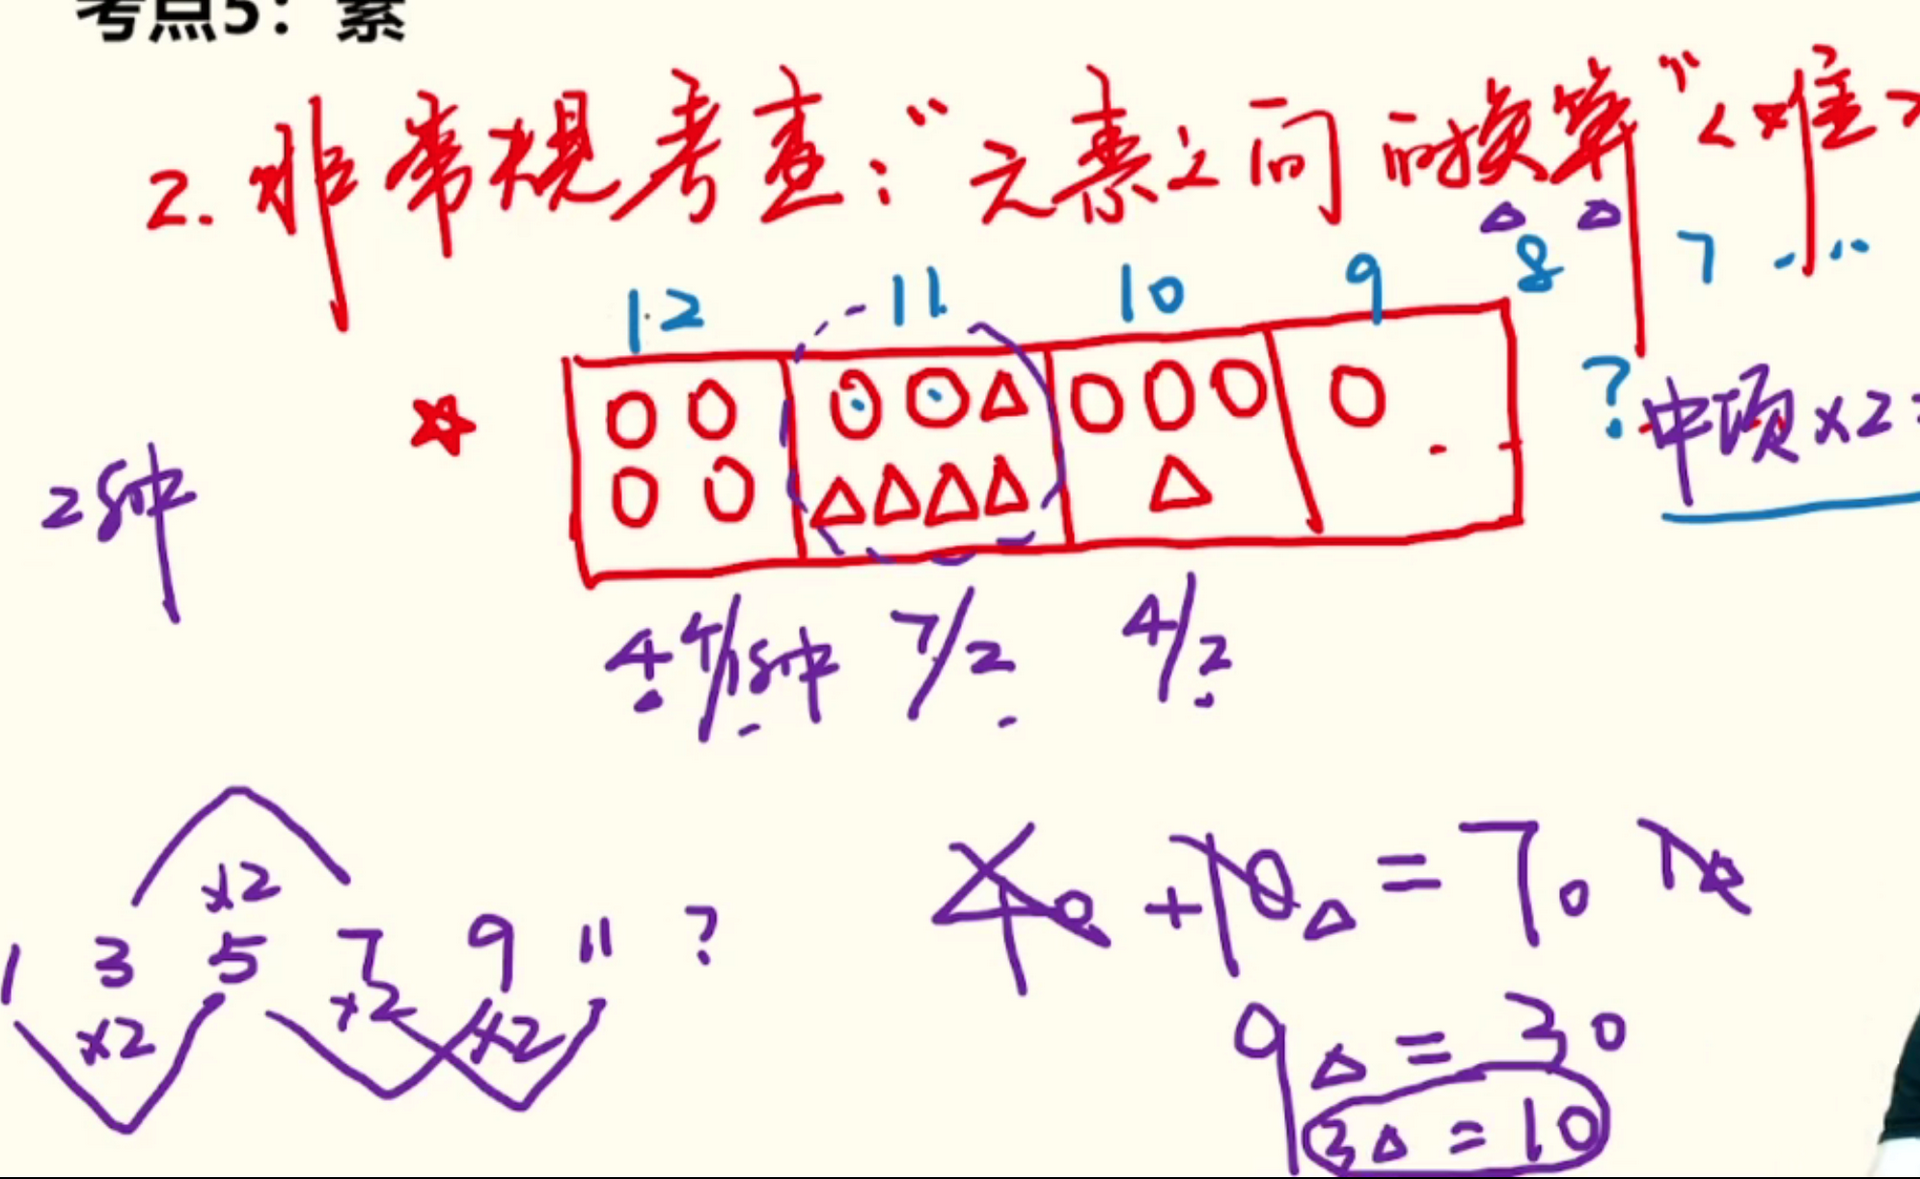 考点5：素
2. 非常规考查："元素之间的换算"<难>
12 11 10 9 8 7 ...
? 中项×2
2种
4 4/1种 7/2 4/2
×2
1 3 5 7 9 11 ?
×2 ×2 ×2
4○+10△=7○ 1△
9△=3○
3△=1○